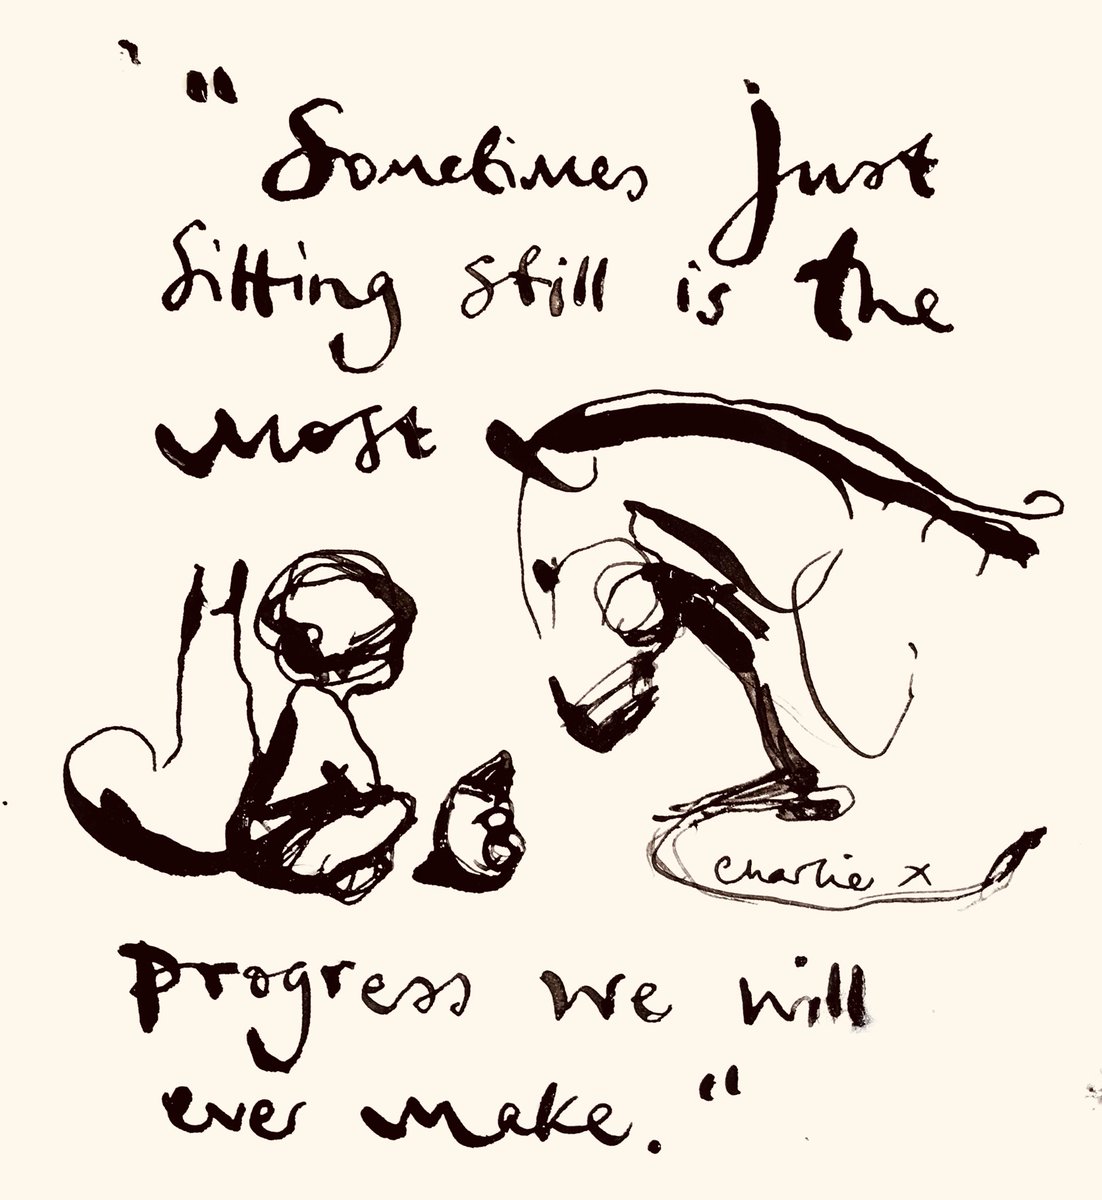 "Sometimes just
sitting still is the
most
Charlie x
progress we will
ever make."